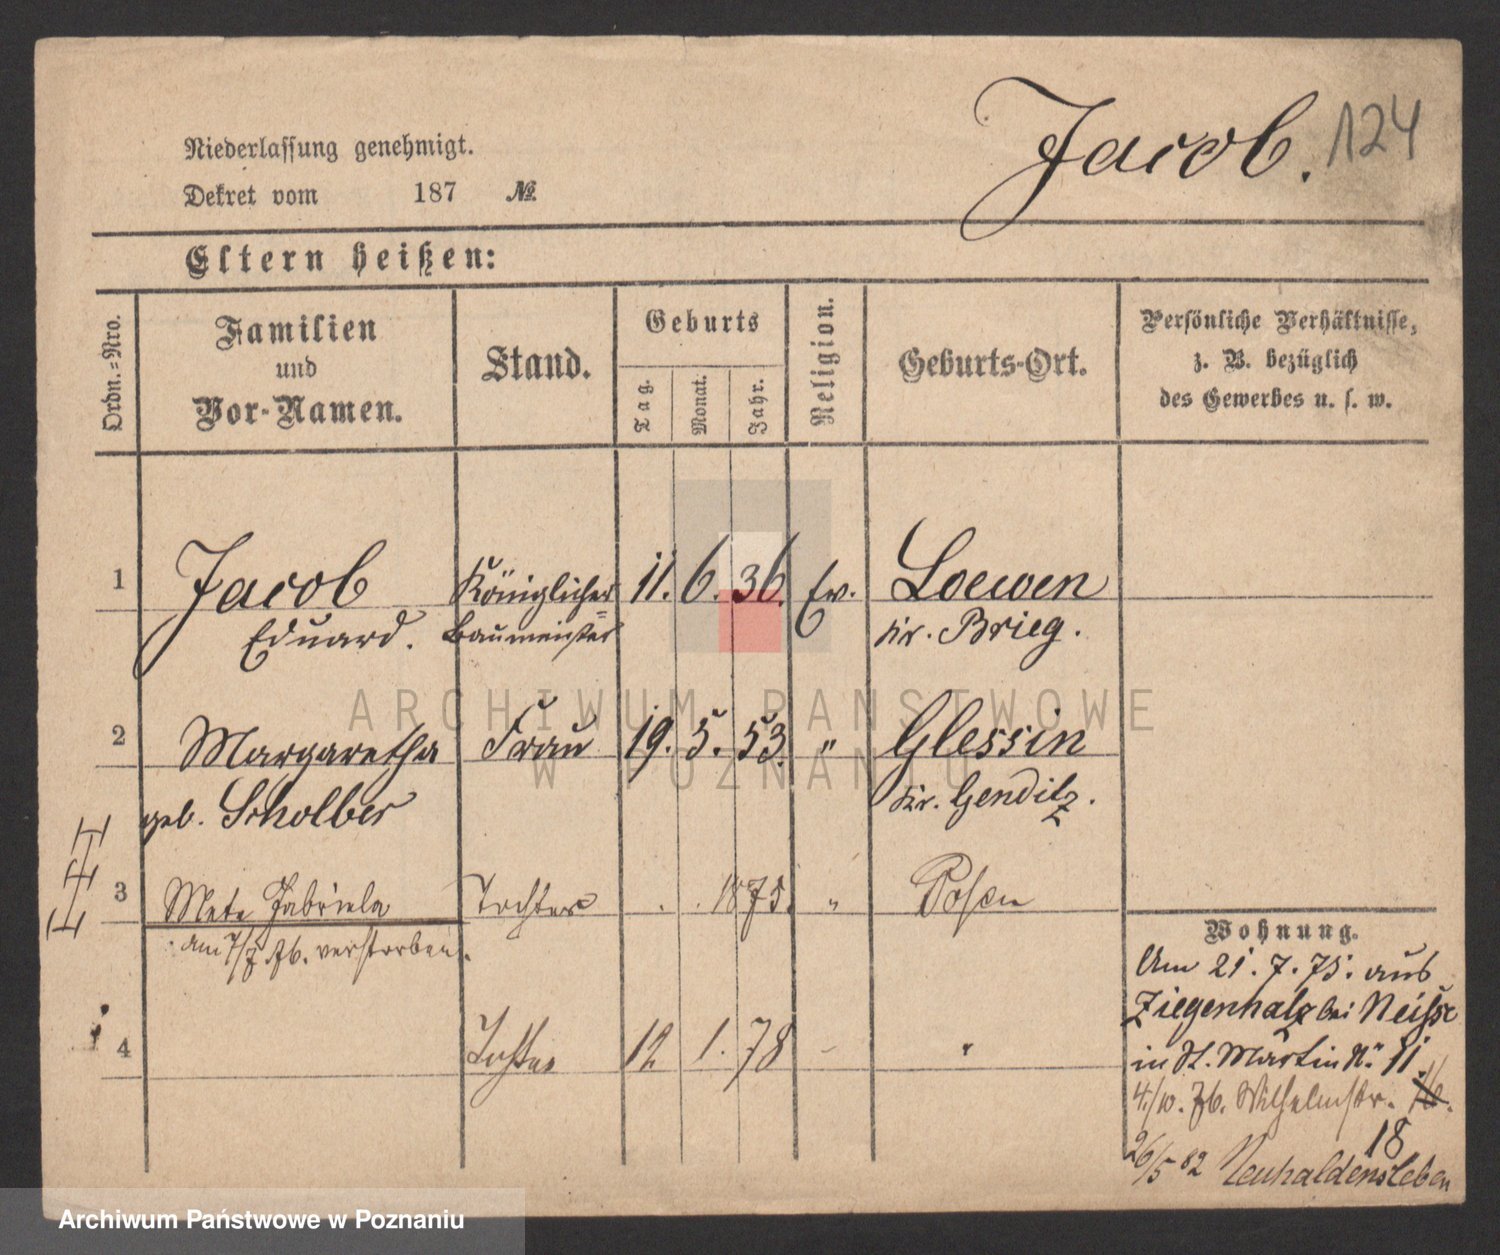 Jacob. 124
Niederlassung genehmigt.
Dekret vom 187 №
Eltern heißen:
Ordn.=Nro.
Familien
und
Vor-Namen.
Stand.
Geburts
Tag.
Monat.
Jahr.
Religion.
Geburts-Ort.
Persönliche Verhältnisse,
z. B. bezüglich
des Gewerbes u. s. w.
1 Jacob Königlicher 11. 6. 36. Ev. Loewen
Eduard. Baumeister Kr. Brieg.
2 Margaretha Frau 19. 5. 53. " Glessin
geb. Scholber Kr. Genditz.
3 Meta Gabriela Tochter . . 1875. " Posen
am 7/7 76. verstorben.
4 Tochter 12 1. 78 - "
Wohnung.
Am 21. 7. 75. aus
Ziegenhalz bei Neisse
in St. Martin N. 11.
4/10. 76. Wilhelmstr. 16.
18
26/5 82 Neuhaldensleben
ARCHIWUM PAŃSTWOWE
W POZNANIU
Archiwum Państwowe w Poznaniu